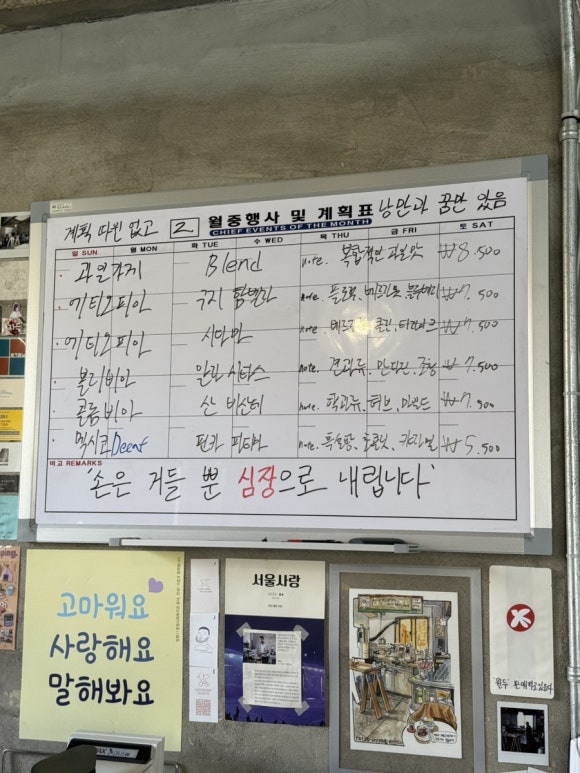 계획 따윈 없고 2 월중행사 및 계획표 낭만과 꿈만 있음
CHIEF EVENTS OF THE MONTH
일 SUN 월 MON 화 TUE 수 WED 목 THU 금 FRI 토 SAT
· 과일가게 Blend note. 복합적인 과일맛 ₩8.500
· 에티오피아 구지 함벨라 note. 플로럴, 베르가못, ₩7.500
· 에티오피아 시다마 note. 클린, ₩7.500
· 볼리비아 알티 시타스 note. 견과류, 만다린, ₩7.500
· 콜롬비아 산 비센테 note. 핵과류, 허브, ₩7.500
· 멕시코 Decaf note. 흑설탕, 초콜릿, 카라멜 ₩5.500
비고 REMARKS
'손은 거들 뿐 심장으로 내립니다'
고마워요
사랑해요
말해봐요
서울사랑
원두 판매하고있습니다